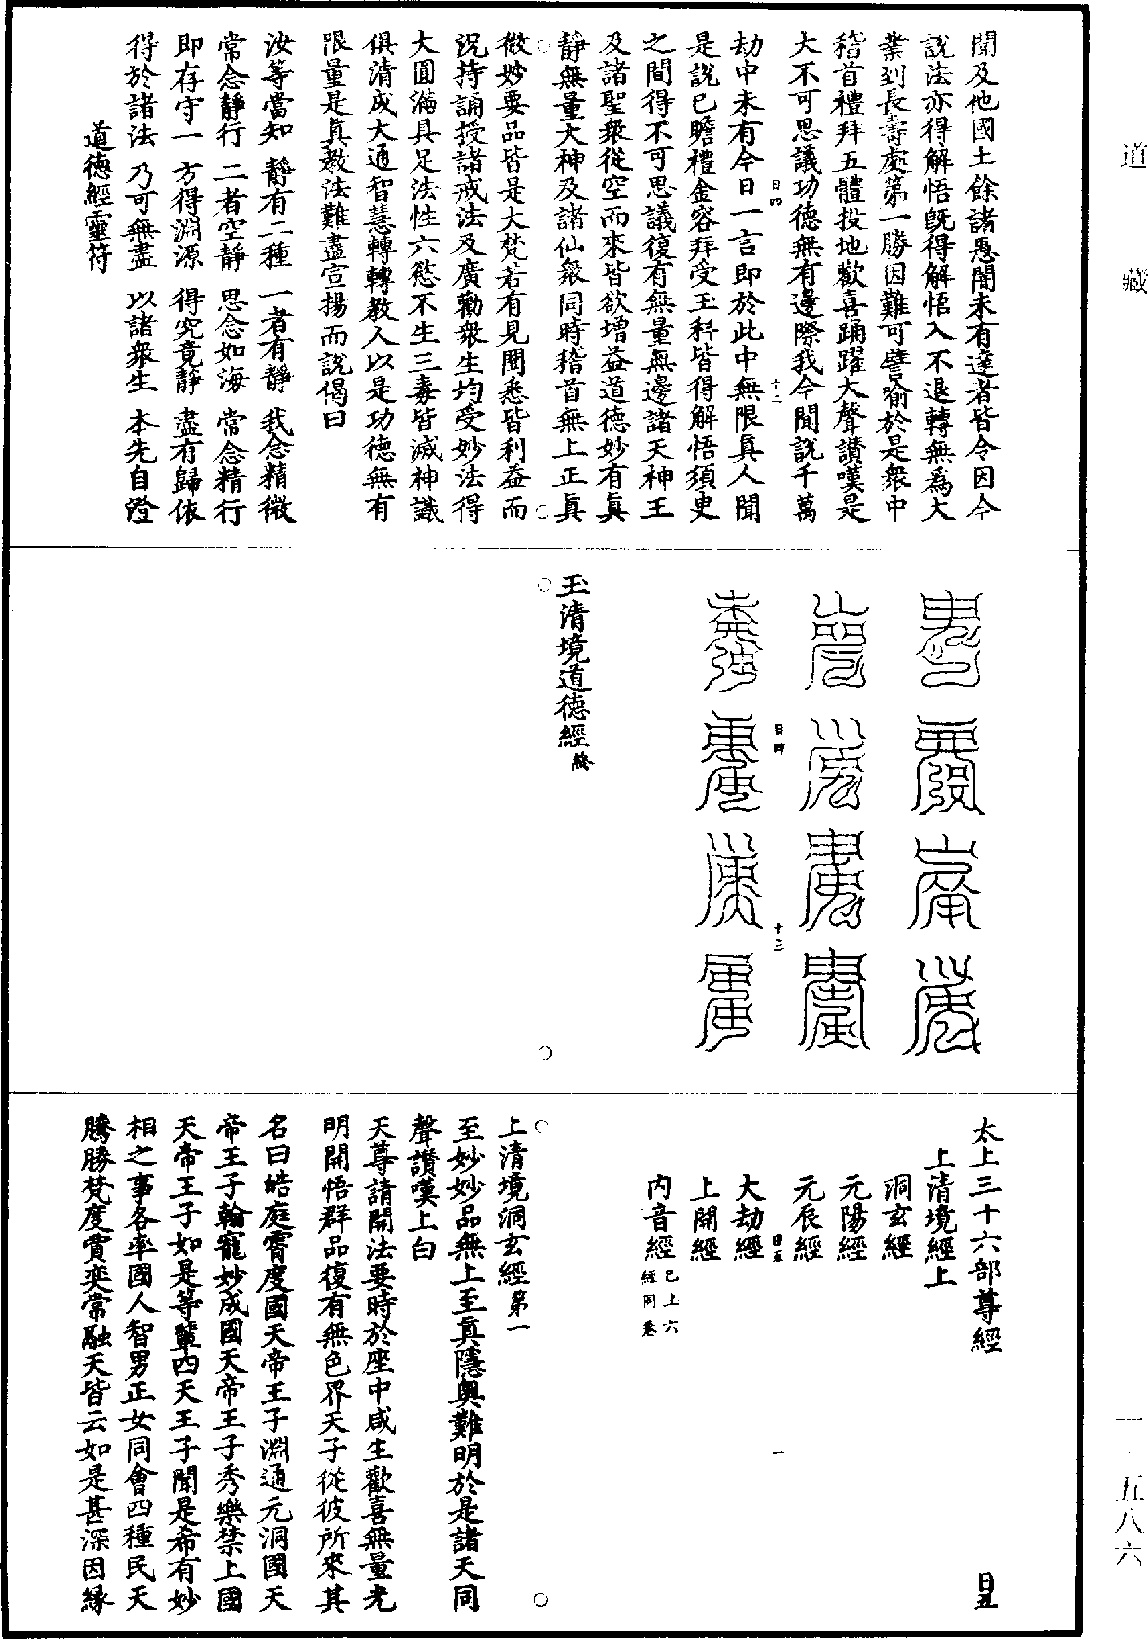 聞及他國土餘諸愚闇未有達者皆令因今
說法亦得解悟旣得解悟入不退轉無爲大
業到長壽處第一勝因難可譬喻於是衆中
稽首禮拜五體投地歡喜踊躍大聲讚嘆是
大不可思議功德無有邊際我今聞說千萬
劫中未有今日一言即於此中無限真人聞
是說已瞻禮金容拜受玉科皆得解悟須臾
之間得不可思議復有無量無邊諸天神王
及諸聖衆從空而來皆欲增益道德妙有真
靜無量大神及諸仙衆同時稽首無上正真
微妙要品皆是大梵若有見聞悉皆利益而
況持誦授諸戒法及廣勸衆生均受妙法得
大圓滿具足法性六慾不生三毒皆滅神識
俱清成大通智慧轉轉教人以是功德無有
限量是真教法難盡宣揚而說偈曰
汝等當知 靜有二種 一者有靜 我念精微
常念靜行 二者空靜 思念如海 常念精行
即存守一 方得淵源 得究竟靜 盡有歸依
得於諸法 乃可無盡 以諸衆生 本先自澄
道德經靈符
日四
十二
日四
十三
玉清境道德經終
太上三十六部尊經
日五
上清境經上
洞玄經
元陽經
元辰經
大劫經
日五
一
上開經
內音經已上六經同卷
上清境洞玄經第一
至妙妙品無上至真隱奧難明於是諸天同
聲讚嘆上白
天尊請開法要時於座中咸生歡喜無量光
明開悟群品復有無色界天子從彼所來其
名曰皓庭霄度國天帝王子淵通元洞國天
帝王子翰寵妙成國天帝王子秀樂禁上國
天帝王子如是等輩四天王子聞是希有妙
相之事各率國人智男正女同會四種民天
騰勝梵度賈奕常融天皆云如是甚深因緣
道
藏
一·五八六